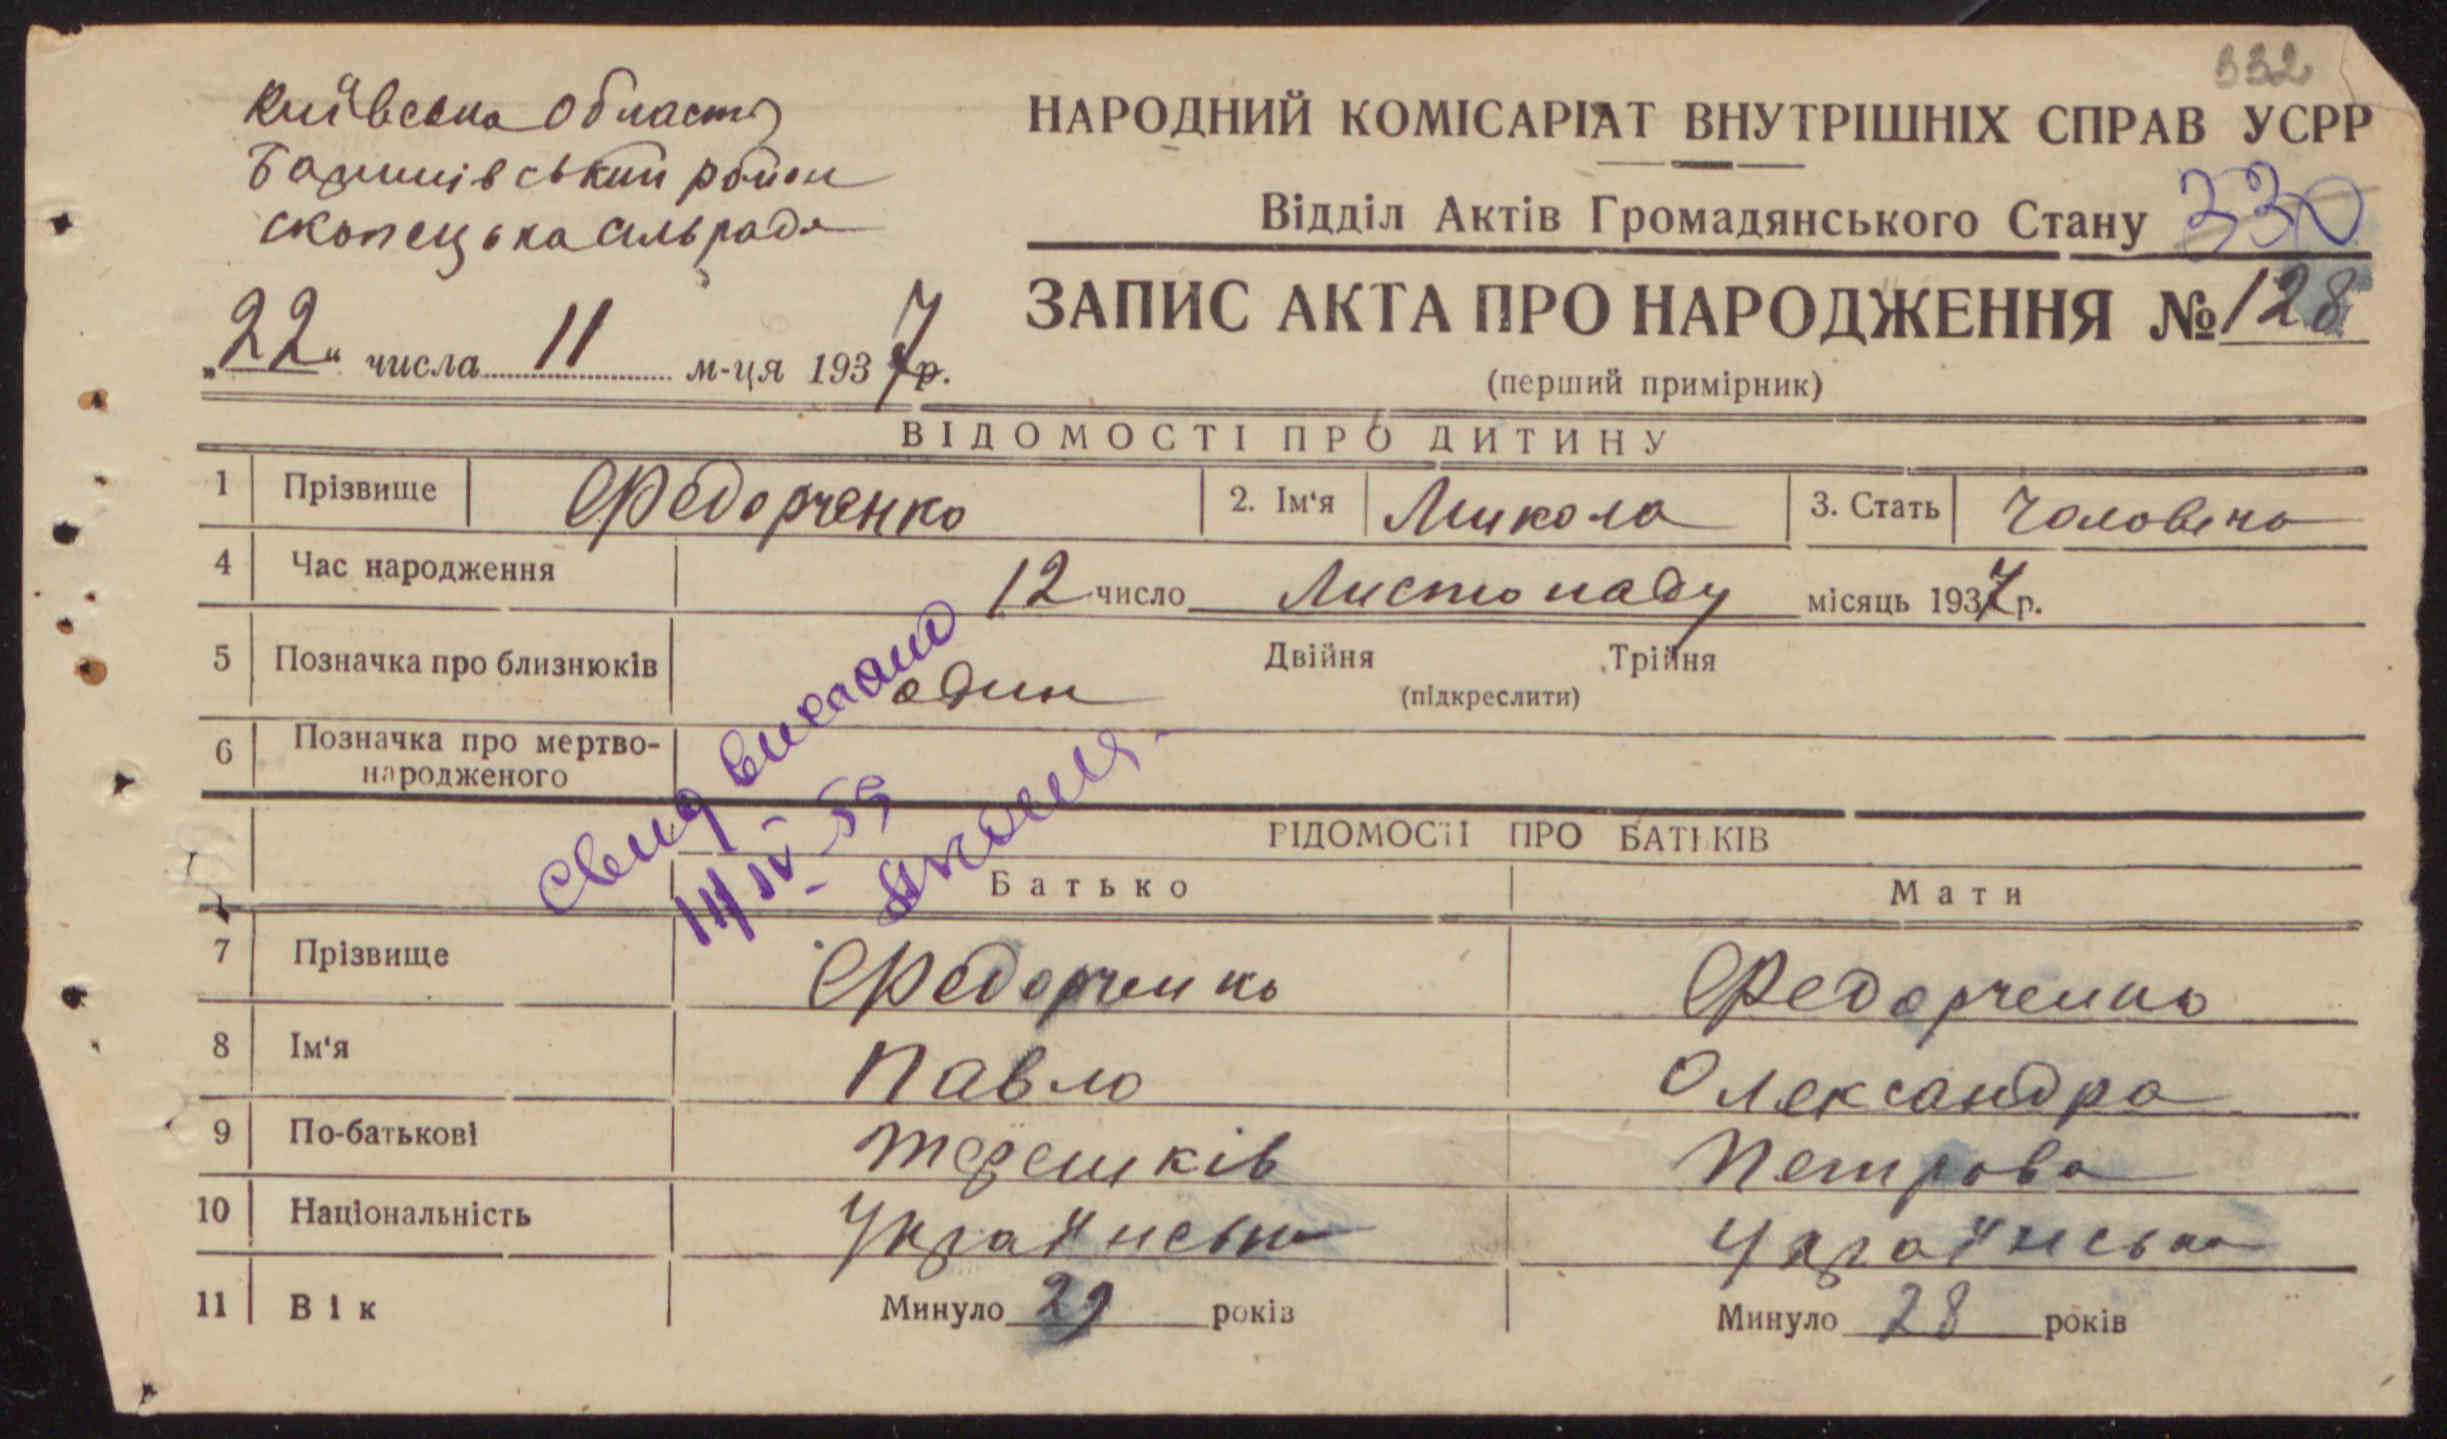 332
Київська область
НАРОДНИЙ КОМІСАРІАТ ВНУТРІШНІХ СПРАВ УСРР
Баришівський район
Відділ Актів Громадянського Стану 330
Скопецька сільрада
ЗАПИС АКТА ПРО НАРОДЖЕННЯ № 128
„22“ числа 11 м-ця 1937 р.
(перший примірник)
ВІДОМОСТІ ПРО ДИТИНУ
1 Прізвище Федорченко 2. Ім‘я Микола 3. Стать Чоловіча
4 Час народження 12 число Листопаду місяць 1937 р.
5 Позначка про близнюків один Двійня Трійня
(підкреслити)
6 Позначка про мертво-
народженого
Свид видано
14/IV-59
ВІДОМОСТІ ПРО БАТЬКІВ
Батько Мати
7 Прізвище Федорченко Федорченко
8 Ім‘я Павло Олександра
9 По-батькові Терешків Петрова
10 Національність Українська Українська
11 Вік Минуло 29 років Минуло 28 років